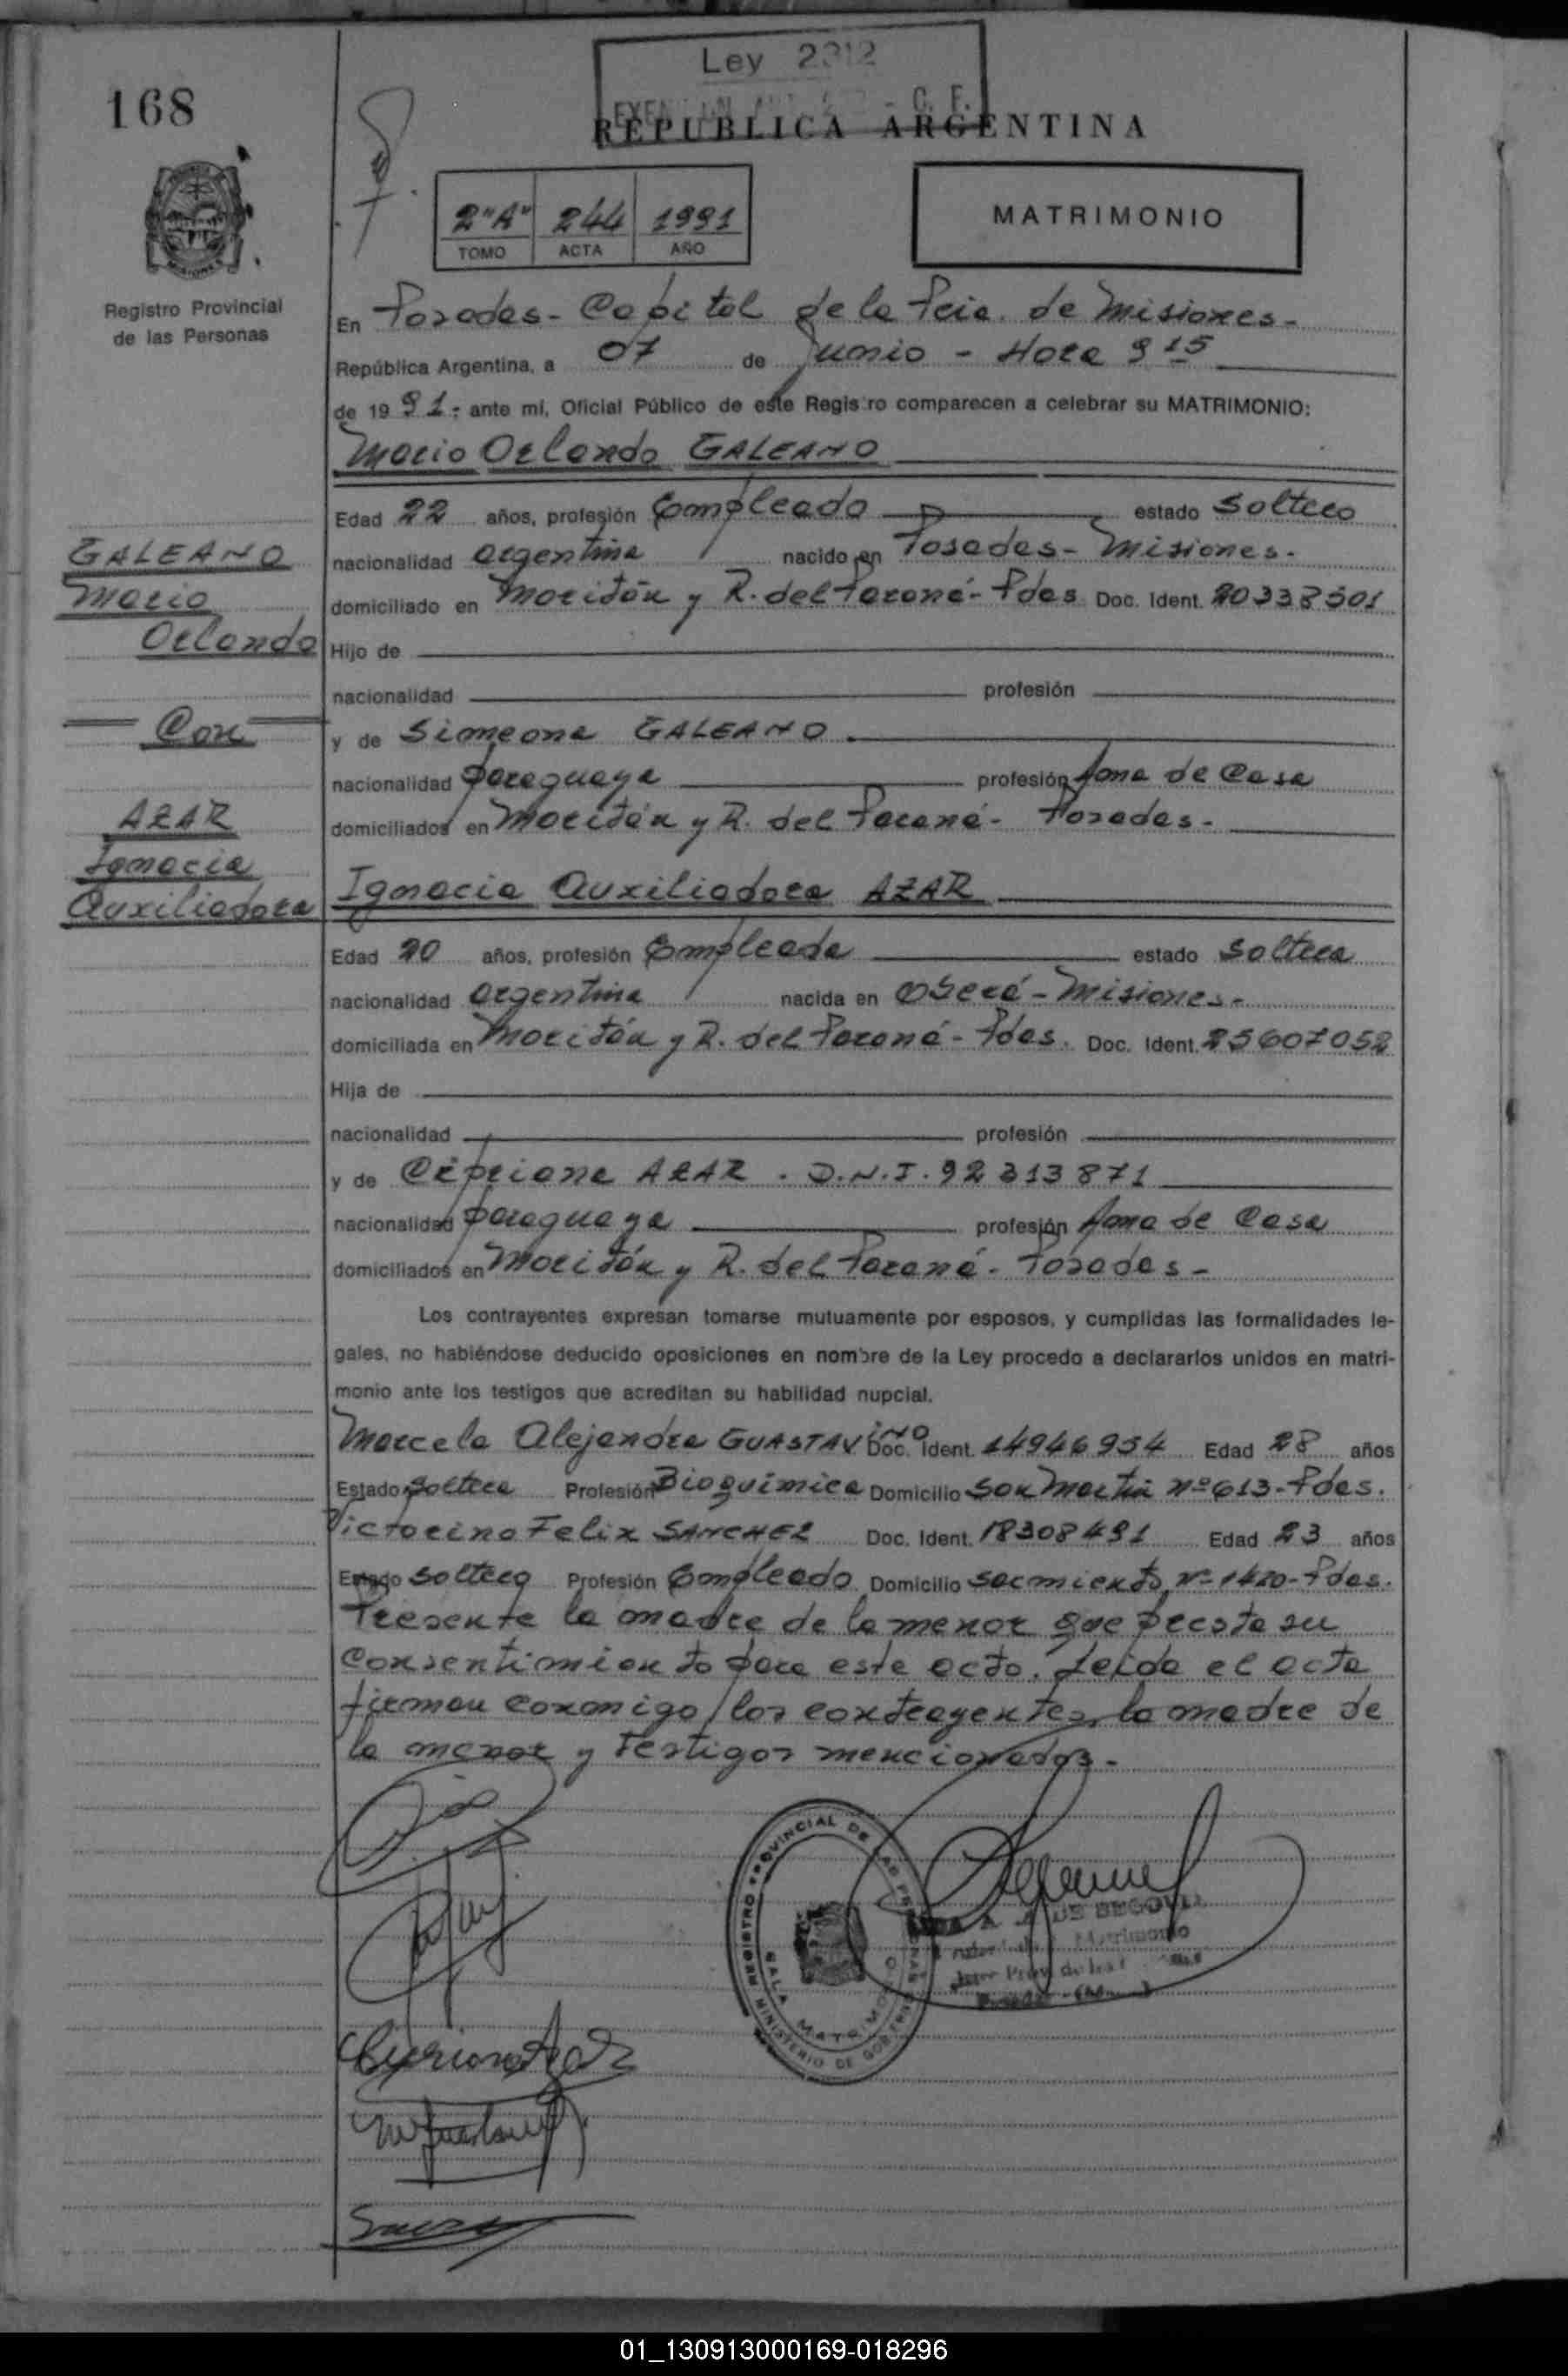 168
Ley 2312
REPUBLICA ARGENTINA
2"A" 244 1991
TOMO ACTA AÑO
MATRIMONIO
Registro Provincial
de las Personas
En Posadas - Capital de la Pcia. de Misiones -
República Argentina, a 07 de Junio - Hora 9 15
de 19 91.- ante mí, Oficial Público de este Registro comparecen a celebrar su MATRIMONIO:
Mario Orlando GALEANO
Edad 22 años, profesión Empleado estado Soltero
GALEANO
nacionalidad Argentina nacido en Posadas - Misiones -
Mario
domiciliado en Moritán y R. del Paraná - Pdas Doc. Ident. 20338501
Orlando
Hijo de
nacionalidad profesión
Con
y de Simeona GALEANO.
nacionalidad paraguaya profesión Ama de Casa
AZAR
domiciliados en Moritán y R. del Paraná - Posadas -
Ignacia
Auxiliadora
Ignacia Auxiliadora AZAR
Edad 20 años, profesión Empleada estado Soltera
nacionalidad Argentina nacida en Oberá - Misiones -
domiciliada en Moritán y R. del Paraná - Pdas. Doc. Ident. 25607052
Hija de
nacionalidad profesión
y de Cipriana AZAR . D.N.I. 92313871
nacionalidad paraguaya profesión Ama de Casa
domiciliados en Moritán y R. del Paraná - Posadas -
Los contrayentes expresan tomarse mutuamente por esposos, y cumplidas las formalidades le-
gales, no habiéndose deducido oposiciones en nombre de la Ley procedo a declararlos unidos en matri-
monio ante los testigos que acreditan su habilidad nupcial.
Marcela Alejandra GUASTAVINO Doc. Ident. 14946954 Edad 28 años
Estado Soltera Profesión Bioquímica Domicilio San Martín Nº 613 - Pdas.
Victorino Felix SANCHEZ Doc. Ident. 18308491 Edad 23 años
Estado Soltero Profesión Empleado Domicilio Sarmiento Nº 1420 - Pdas.
Presente la madre de la menor que presta su
Consentimiento para este acto. Leída el acta
firman conmigo los contrayentes, la madre de
la menor y testigos mencionados.-
REGISTRO PROVINCIAL DE LAS PERSONAS
SALA MATRIMONIO
MINISTERIO DE GOBIERNO
DE SEGOVIA
Matrimonio
Cipriana Azar
01_130913000169-018296